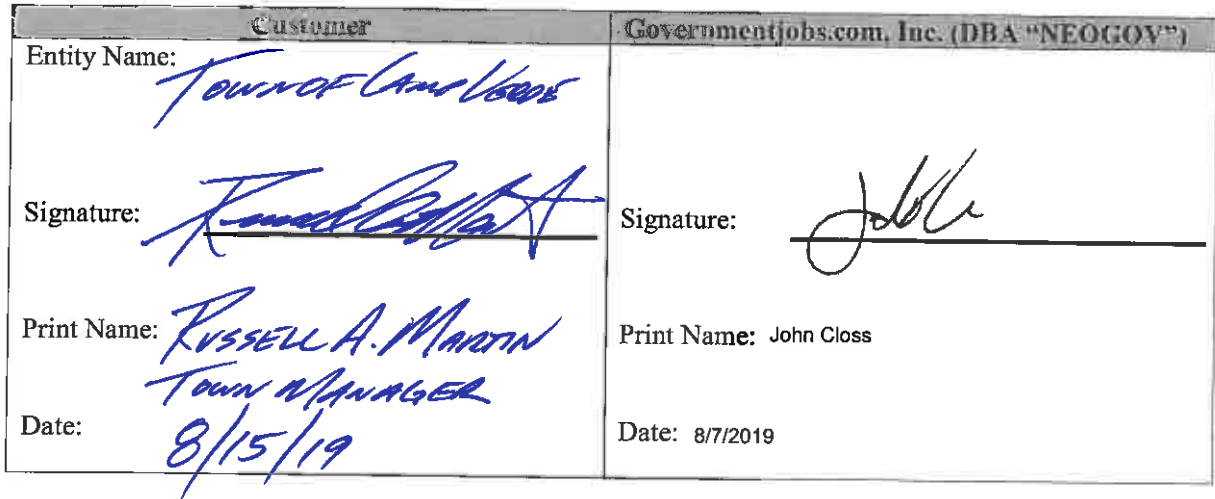 Customer
Governmentjobs.com, Inc. (DBA "NEOGOV")
Entity Name:
TOWN OF CAMP VERDE
Signature:
Signature:
Print Name: RUSSELL A. MARTIN
TOWN MANAGER
Print Name: John Closs
Date: 8/15/19
Date: 8/7/2019